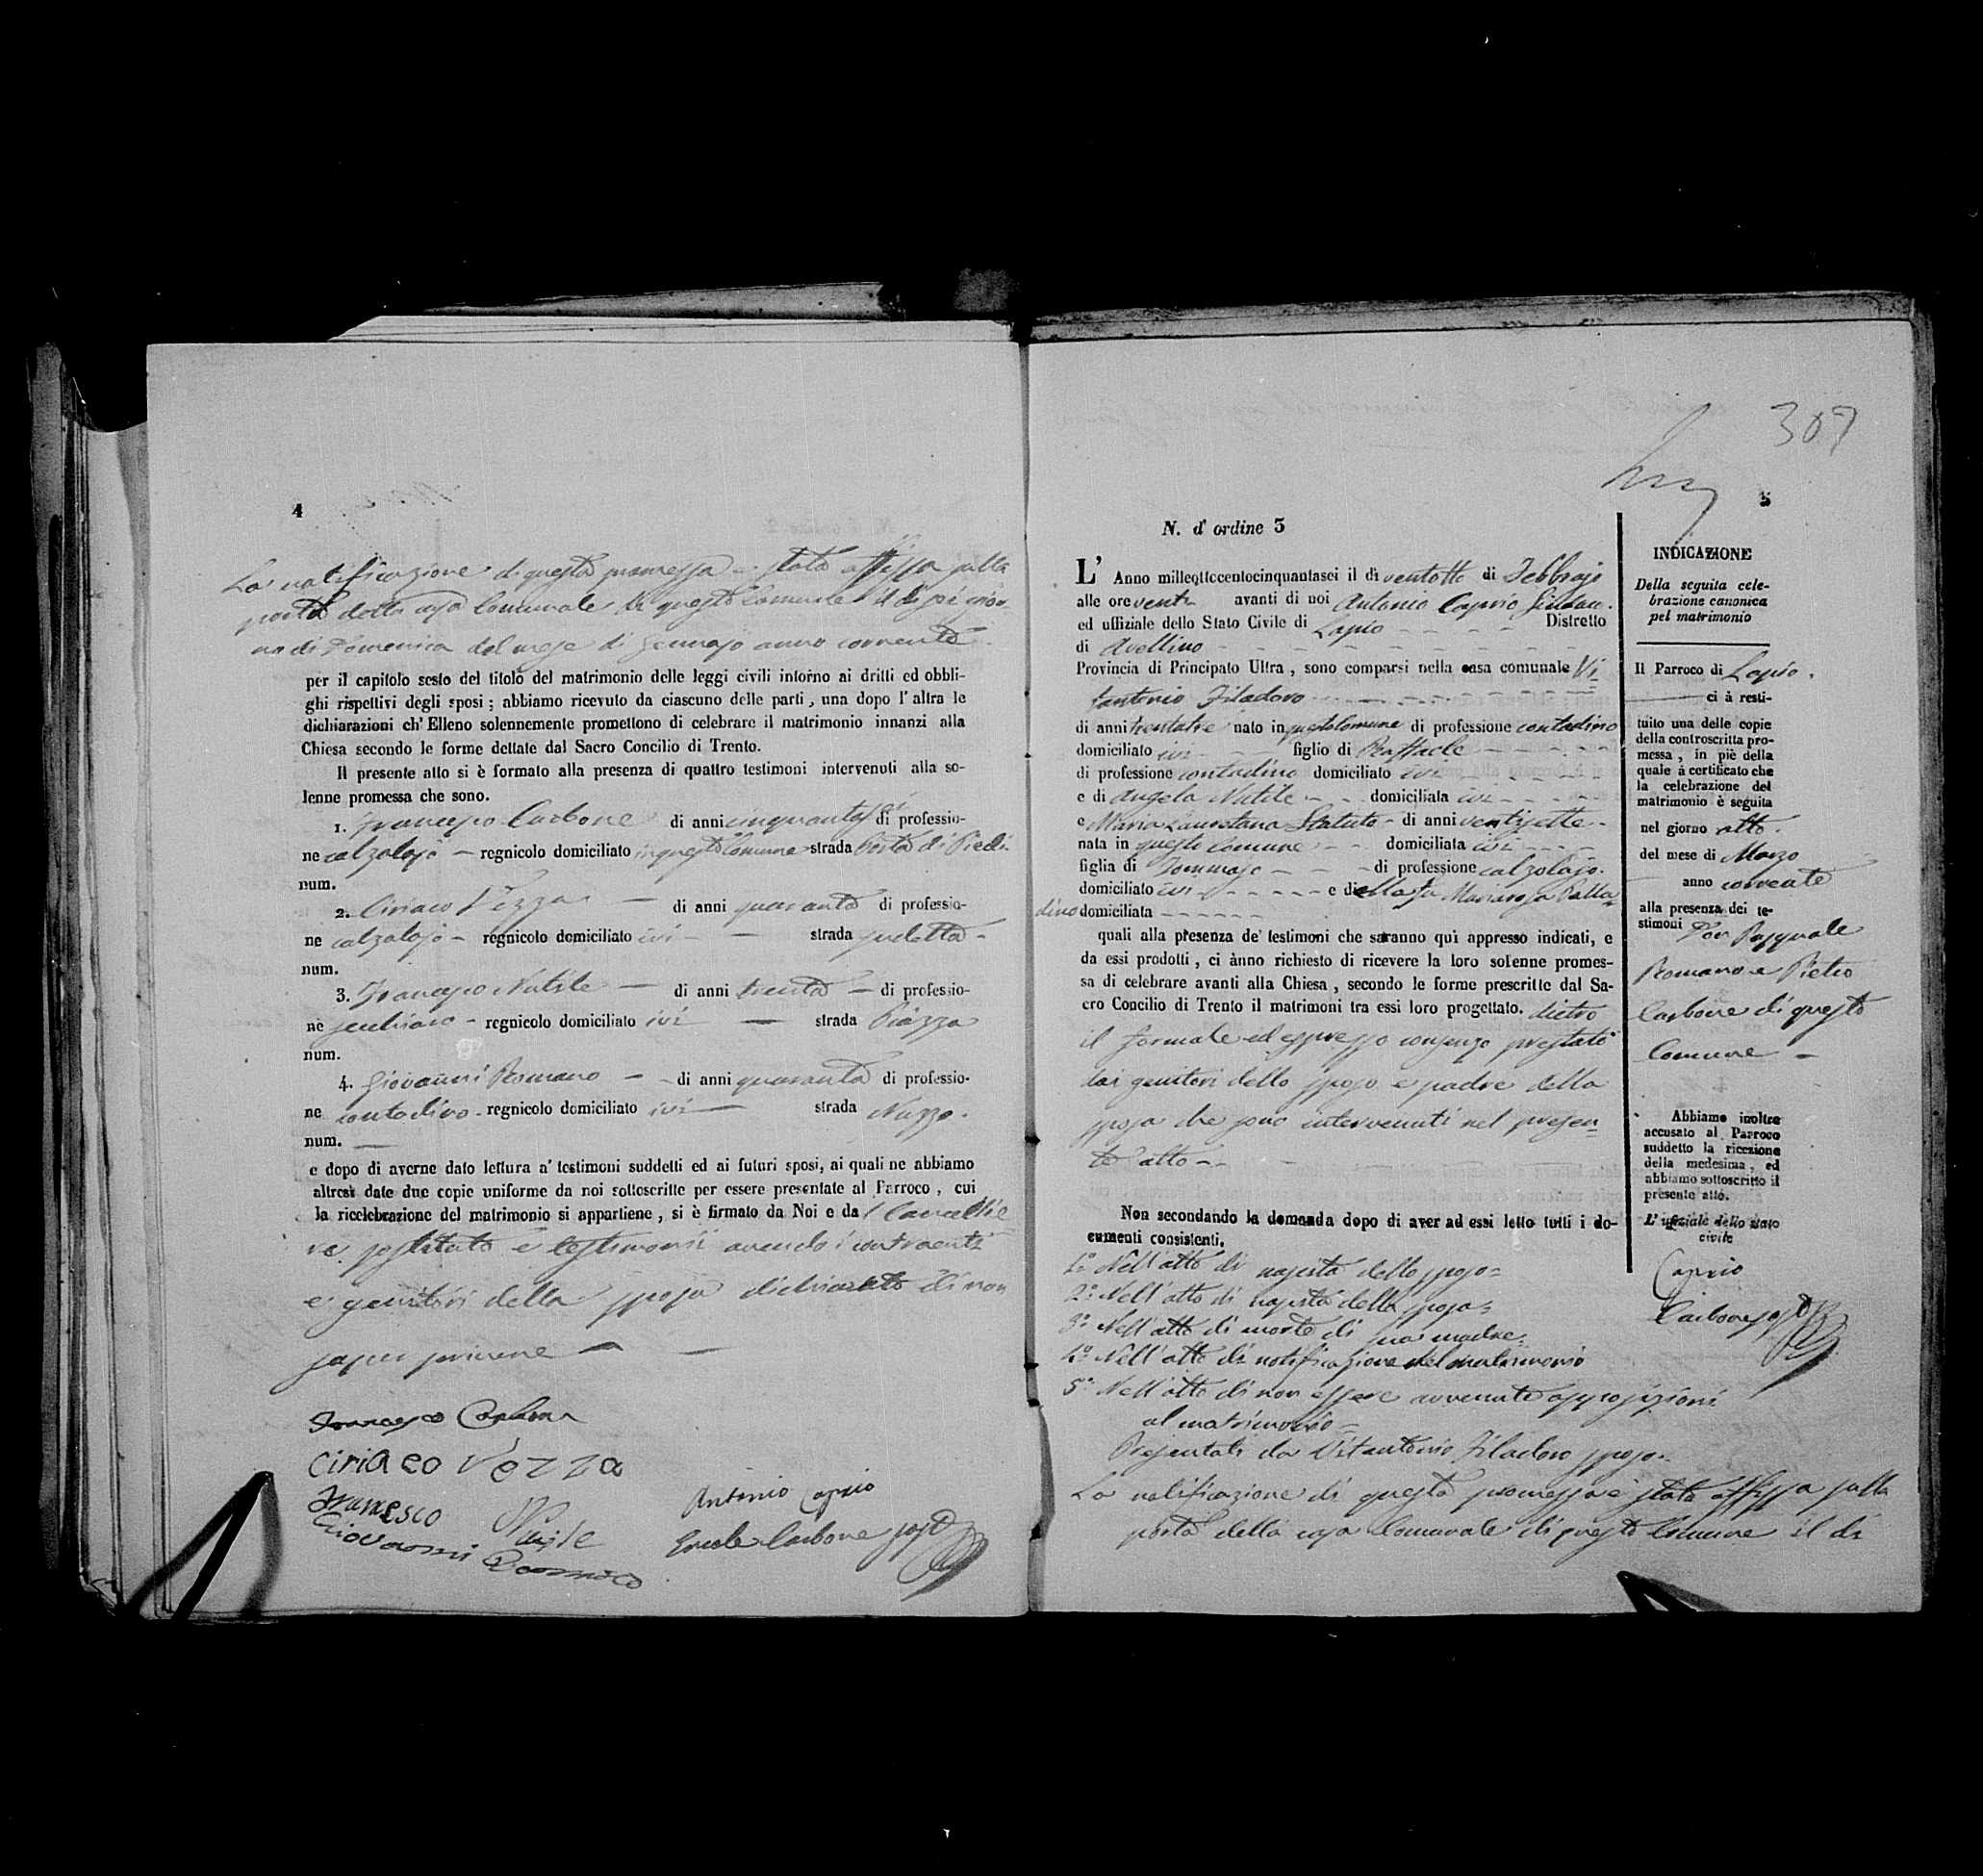 4
La notificazione di questa promessa è stata affissa sulla
porta della casa Comunale di questo Comune il di sei gior-
no di Domenica del mese di Gennajo anno corrente
per il capitolo sesto del titolo del matrimonio delle leggi civili intorno ai dritti ed obbli-
ghi rispettivi degli sposi ; abbiamo ricevuto da ciascuno delle parti, una dopo l' altra le
dichiarazioni ch' Elleno solennemente promettono di celebrare il matrimonio innanzi alla
Chiesa secondo le forme dettate dal Sacro Concilio di Trento.
Il presente atto si è formato alla presenza di quattro testimoni intervenuti alla so-
lenne promessa che sono.
1. Francesco Carbone di anni cinquantasei di professio-
ne calzolajo – regnicolo domiciliato in questo Comune strada Porta di Piedi
num.
2. Ciriaco Vezza — di anni quaranta di professio-
ne calzolajo – regnicolo domiciliato ivi — strada
num.
3. Francesco Nutile — di anni trenta — di professio-
ne – regnicolo domiciliato ivi — strada Piazza
num.
4. Giovanni Romano — di anni quaranta di professio-
ne contadino - regnicolo domiciliato ivi — strada Nuzzo.
num. —
e dopo di averne dato lettura a' testimoni suddetti ed ai futuri sposi, ai quali ne abbiamo
altresì date due copie uniforme da noi sottoscritte per essere presentate al Parroco, cui
la ricelebrazione del matrimonio si appartiene, si è firmato da Noi e dal Cancellie
re sostituto e testimonii avendo i contraenti
e genitori della sposa dichiarato di non
saper scrivere —
Francesco Carbone
Ciriaco Vezza
Francesco Nutile
Giovanni Romano
Antonio Caprio
Ercole Carbone sost
307
5
N. d' ordine 3
L' Anno milleottocentocinquantasei il dì ventotto di Febbrajo
alle ore venti avanti di noi Antonio Caprio Sindaco.
ed uffiziale dello Stato Civile di Lapio Distretto
di Avellino
Provincia di Principato Ultra, sono comparsi nella casa comunale Vi=
tantonio Filadoro
di anni trentatre nato in questo Comune di professione contadino
domiciliato ivi figlio di Raffaele
di professione contadino domiciliato ivi
e di Angela Nutile domiciliata ivi
e Maria Lauretana Statuto - di anni ventisette
nata in questo Comune domiciliata ivi
figlia di Tommaso di professione calzolajo.
domiciliato ivi e di Mariarosa Palla
dino domiciliata
quali alla presenza de' testimoni che saranno qui appresso indicati, e
da essi prodotti, ci ànno richiesto di ricevere la loro solenne promes-
sa di celebrare avanti alla Chiesa, secondo le forme prescritte dal Sa-
cro Concilio di Trento il matrimoni tra essi loro progettato. dietro
il formale ed espresso consenso prestato
dai genitori dello sposo e padre della
sposa che sono intervenuti nel presen=
te atto –
Non secondando la domanda dopo di aver ad essi letto tutti i do-
cumenti consistenti.
1º Nell'atto di nascita dello sposo=
2º Nell'atto di nascita della sposa=
3º Nell'atto di morte di sua madre=
4º Nell'atto di notificazione del matrimonio
5º Nell'atto di non essere avvenute opposizioni
al matrimonio=
Presentati da Vitantonio Filadoro sposo.
La notificazione di questa promessa è stata affissa sulla
porta della casa Comunale di questo Comune il dì
INDICAZIONE
Della seguita cele-
brazione canonica
pel matrimonio
Il Parroco di Lapio.
ci à resti-
tuito una delle copie
della controscritta pro-
messa, in piè della
quale à certificato che
la celebrazione del
matrimonio è seguita
nel giorno otto.
del mese di Marzo
anno corrente
alla presenza dei te-
stimoni Don Pasquale
Romano e Pietro
Carbone di questo
Comune —
Abbiamo inoltre
accusato al Parroco
suddetto la ricezione
della medesima, ed
abbiamo sottoscritto il
presente atto.
L' ufiziale dello stato
civile
Caprio
Carbone sost